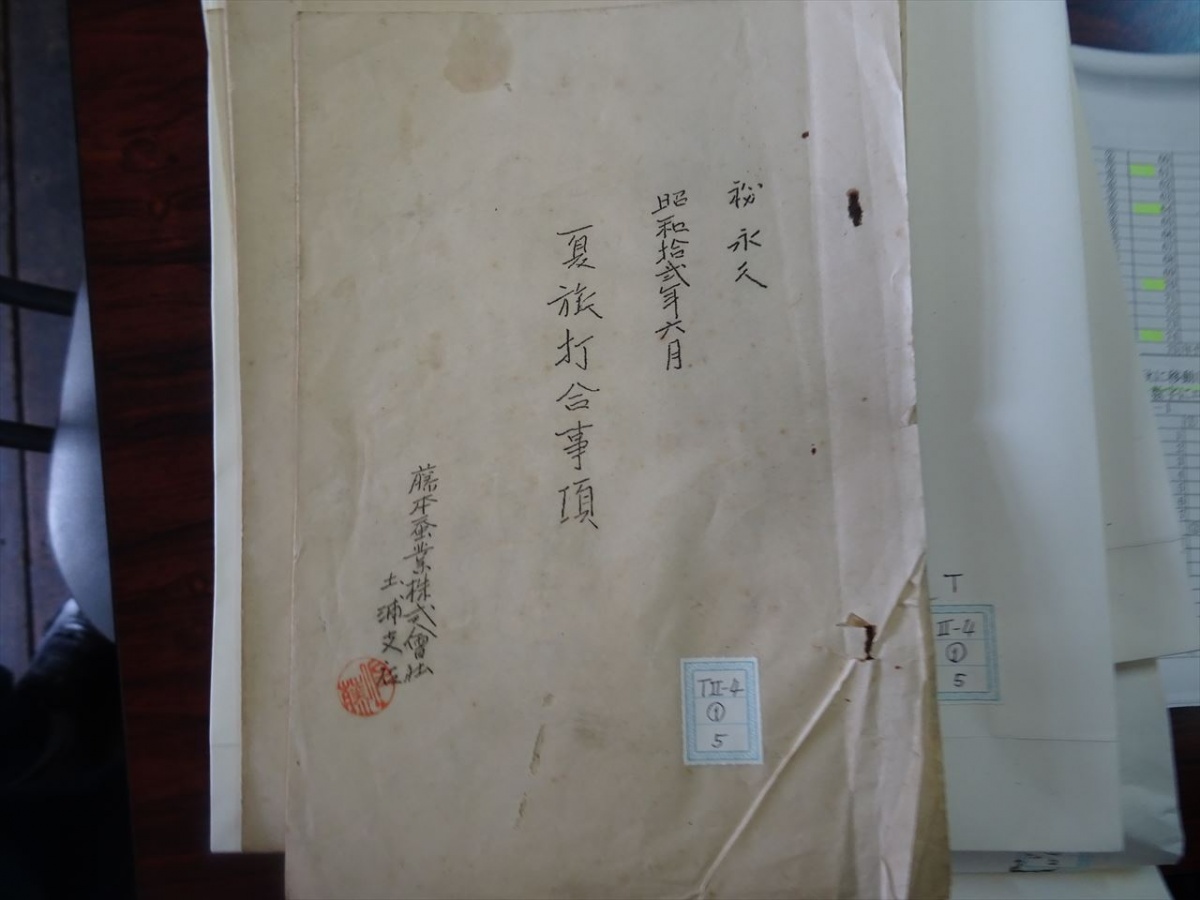 秘永久
昭和拾弐年六月
夏旅打合事項
藤本蚕業株式會社
土浦支店
TII-4
①
5
T
II-4
①
5